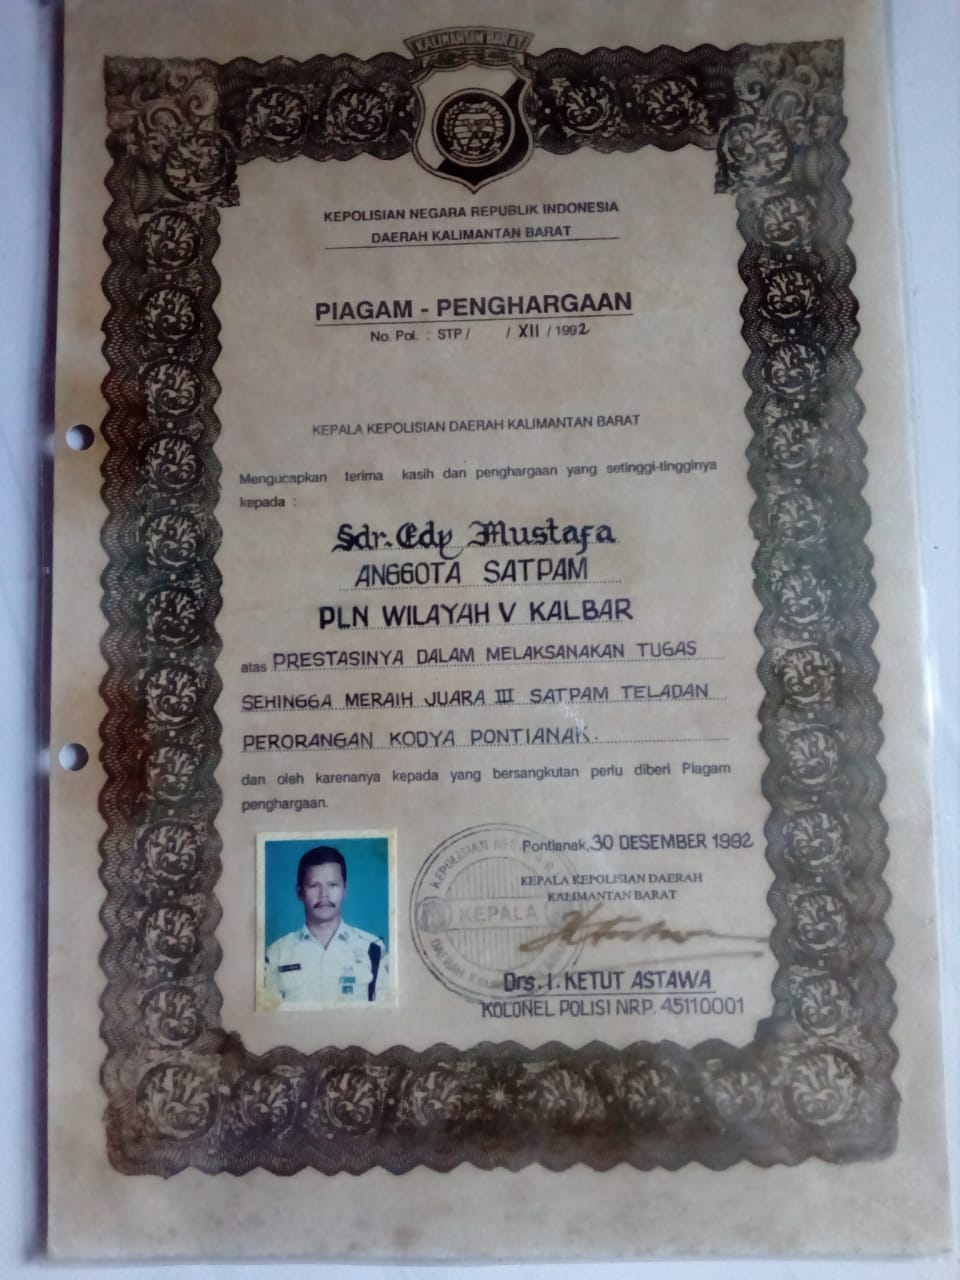 KALIMANTAN BARAT
KEPOLISIAN NEGARA REPUBLIK INDONESIA
DAERAH KALIMANTAN BARAT
PIAGAM - PENGHARGAAN
No. Pol. : STP / / XII / 1992
KEPALA KEPOLISIAN DAERAH KALIMANTAN BARAT
Mengucapkan terima kasih dan penghargaan yang setinggi-tingginya
kepada :
Sdr. Edy Mustafa
ANGGOTA SATPAM
PLN WILAYAH V KALBAR
atas PRESTASINYA DALAM MELAKSANAKAN TUGAS
SEHINGGA MERAIH JUARA III SATPAM TELADAN
PERORANGAN KODYA PONTIANAK.
dan oleh karenanya kepada yang bersangkutan perlu diberi Piagam
penghargaan.
Pontianak, 30 DESEMBER 1992
KEPALA KEPOLISIAN DAERAH
KALIMANTAN BARAT
KEPOLISIAN NEGARA
KEPALA
DAERAH
Drs. I. KETUT ASTAWA
KOLONEL POLISI NRP. 45110001